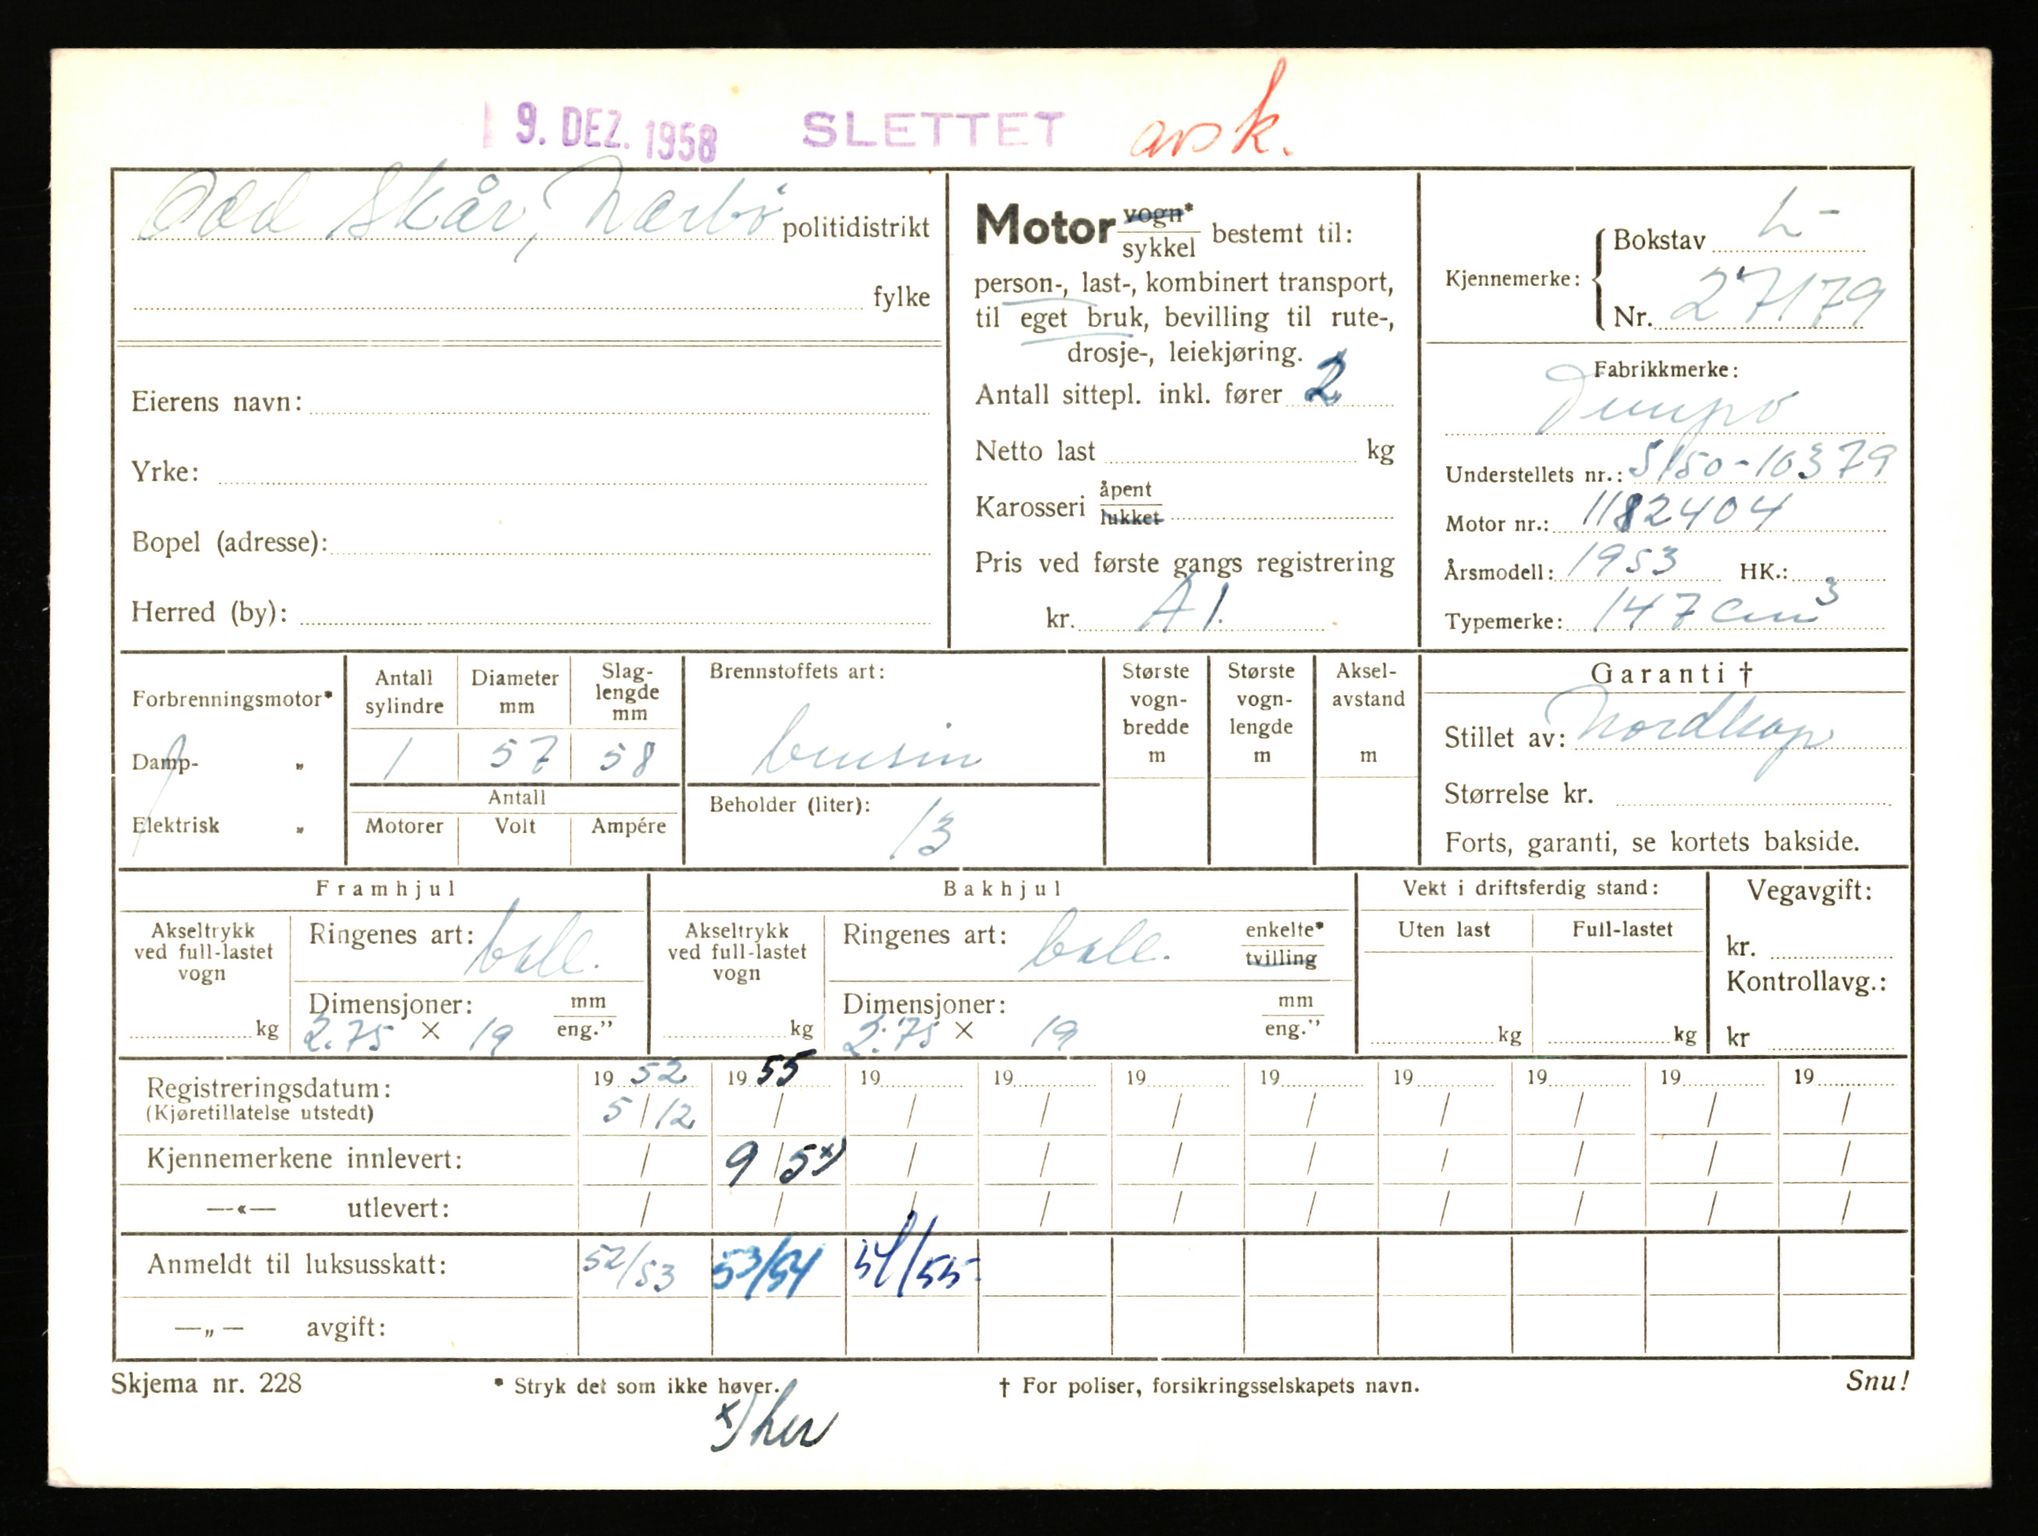 9. DEZ. 1958 SLETTET avsk.
Odd Skår, Nærbø politidistrikt
fylke
Eierens navn:
Yrke:
Bopel (adresse):
Herred (by):
Motor vogn* sykkel bestemt til:
person-, last-, kombinert transport,
til eget bruk, bevilling til rute-,
drosje-, leiekjøring.
Antall sittepl. inkl. fører 2
Netto last kg
Karosseri åpent lukket
Pris ved første gangs registrering
kr. A 1.
Kjennemerke: Bokstav L-
Nr. 27179
Fabrikkmerke:
Tempo
Understellets nr.: 5150-10379
Motor nr.: 1182404
Årsmodell: 1953 HK.:
Typemerke: 147 cm3
Forbrenningsmotor*
Damp- „
Elektrisk „
Antall sylindre
Diameter mm
Slag-
lengde
mm
1 57 58
Antall
Motorer Volt Ampére
Brennstoffets art:
bensin
Beholder (liter):
13
Største
vogn-
bredde
m
Største
vogn-
lengde
m
Aksel-
avstand
m
Garanti †
Stillet av: Nordkap
Størrelse kr.
Forts, garanti, se kortets bakside.
Framhjul
Akseltrykk
ved full-lastet
vogn
kg
Ringenes art: ball.
Dimensjoner: mm
2.75 × 19 eng.”
Bakhjul
Akseltrykk
ved full-lastet
vogn
kg
Ringenes art: ball. enkelte*
tvilling
Dimensjoner: mm
2.75 × 19 eng.”
Vekt i driftsferdig stand:
Uten last Full-lastet
kg kg
Vegavgift:
kr.
Kontrollavg.:
kr
Registreringsdatum: 19 52 19 55 19 19 19 19 19 19 19 19
(Kjøretillatelse utstedt) 5 / 12 / / / / / / / / /
Kjennemerkene innlevert: / 9 / 5 x) / / / / / / / /
—«— utlevert: / / / / / / / / / /
Anmeldt til luksusskatt: 52/53 53/54 54/55
—„— avgift:
Skjema nr. 228 * Stryk det som ikke høver. † For poliser, forsikringsselskapets navn. Snu!
x) her